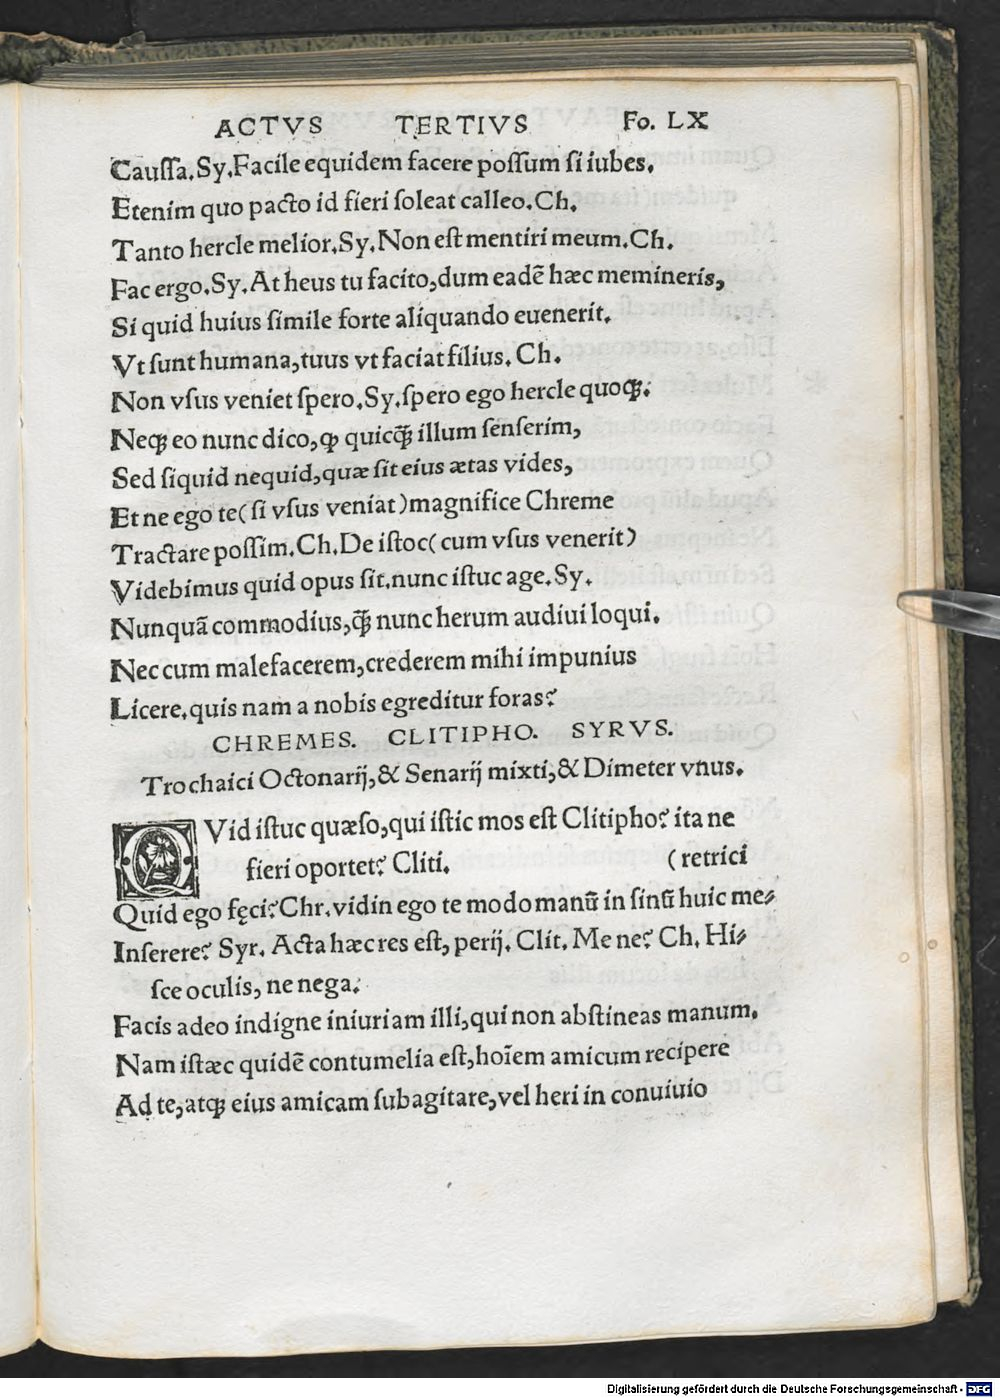 ACTVS TERTIVS Fo. LX
Cauſſa.Sy.Facile equidem facere poſſum ſi iubes.
Etenim quo pacto id fieri ſoleat calleo.Ch.
Tanto hercle melior.Sy.Non eſt mentiri meum.Ch.
Fac ergo.Sy.At heus tu facito,dum eadē hæc memineris,
Si quid huius ſimile forte aliquando euenerit.
Vt ſunt humana,tuus vt faciat filius.Ch.
Non vſus veniet ſpero.Sy.ſpero ego hercle quoqꝫ:
Neqꝫ eo nunc dico,ꝙ quicq̄ꝫ illum ſenſerim,
Sed ſiquid nequid,quæ ſit eius ætas vides,
Et ne ego te(ſi vſus veniat)magnifice Chreme
Tractare poſſim.Ch.De iſtoc(cum vſus venerit)
Videbimus quid opus ſit.nunc iſtuc age.Sy.
Nunquā commodius,q̄ꝫ nunc herum audiui loqui.
Nec cum malefacerem,crederem mihi impunius
Licere.quis nam a nobis egreditur foras?
CHREMES. CLITIPHO. SYRVS.
Trochaici Octonarij,& Senarij mixti,& Dimeter vnus.
QVid iſtuc quæſo,qui iſtic mos eſt Clitipho? ita ne
fieri oportet? Cliti. (retrici
Quid ego fęci?Chr.vidin ego te modo manū in ſinū huic me⸗
Inſerere? Syr. Acta hæc res eſt, perij. Clit. Me ne? Ch. Hi⸗
ſce oculis, ne nega:
Facis adeo indigne iniuriam illi,qui non abſtineas manum.
Nam iſtæc quidē contumelia eſt,hoīem amicum recipere
Ad te,atqꝫ eius amicam ſubagitare,vel heri in conuiuio
Digitalisierung gefördert durch die Deutsche Forschungsgemeinschaft - DFG